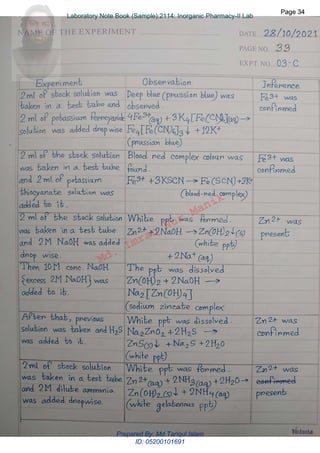 Page 34
Laboratory Note Book (Sample):2114: Inorganic Pharmacy-II Lab
NAME OF THE EXPERIMENT
DATE 28/10/2021
PAGE NO. 33
EXPT. NO. 03-C
Experiment Observation Inference
2 ml of stock solution was
taken in a test tube and
2 ml of potassium ferrocyanide
solution was added drop wise
Deep blue (prussion blue) was
observed.
4Fe3+(aq) + 3K4[Fe(CN)6](aq) →
Fe4[Fe(CN)6]3↓ + 12K+
(prussian blue)
Fe3+ was
confirmed
2 ml of the stock solution
was taken in a test tube
and 2 ml of potassium
thiocyanate solution was
added to it.
Blood red complex colour was
found.
Fe3+ + 3KSCN → Fe(SCN)+3K+
(blood-red complex)
Fe3+ was
confirmed
2 ml of the stock solution
was taken in a test tube
and 2M NaOH was added
drop wise.
White ppt was formed.
Zn2+ + 2NaOH → Zn(OH)2↓(s)
(white ppt)
+ 2Na+ (aq)
Zn2+ was
present
Then 10M conc. NaOH
{excess 2M NaOH} was
added to it.
The ppt was dissolved
Zn(OH)2 + 2NaOH →
Na2[Zn(OH)4]
(sodium zincate complex
After that, previous
solution was taken and H2S
was added to it.
White ppt was dissolved.
Na2ZnO2 + 2H2S →
ZnS(s)↓ + Na2S + 2H2O
(white ppt)
Zn2+ was
confirmed
2 ml of stock solution
was taken in a test tube
and 2M dilute ammonia
was added dropwise.
White ppt was formed.
Zn2+(aq) + 2NH3(aq) + 2H2O →
Zn(OH)2(s)↓ + 2NH4(aq)
(white gelatenious ppt)
Zn2+ was
confirmed
present
Prepared By: Md Tariqul Islam
ID: 05200101691